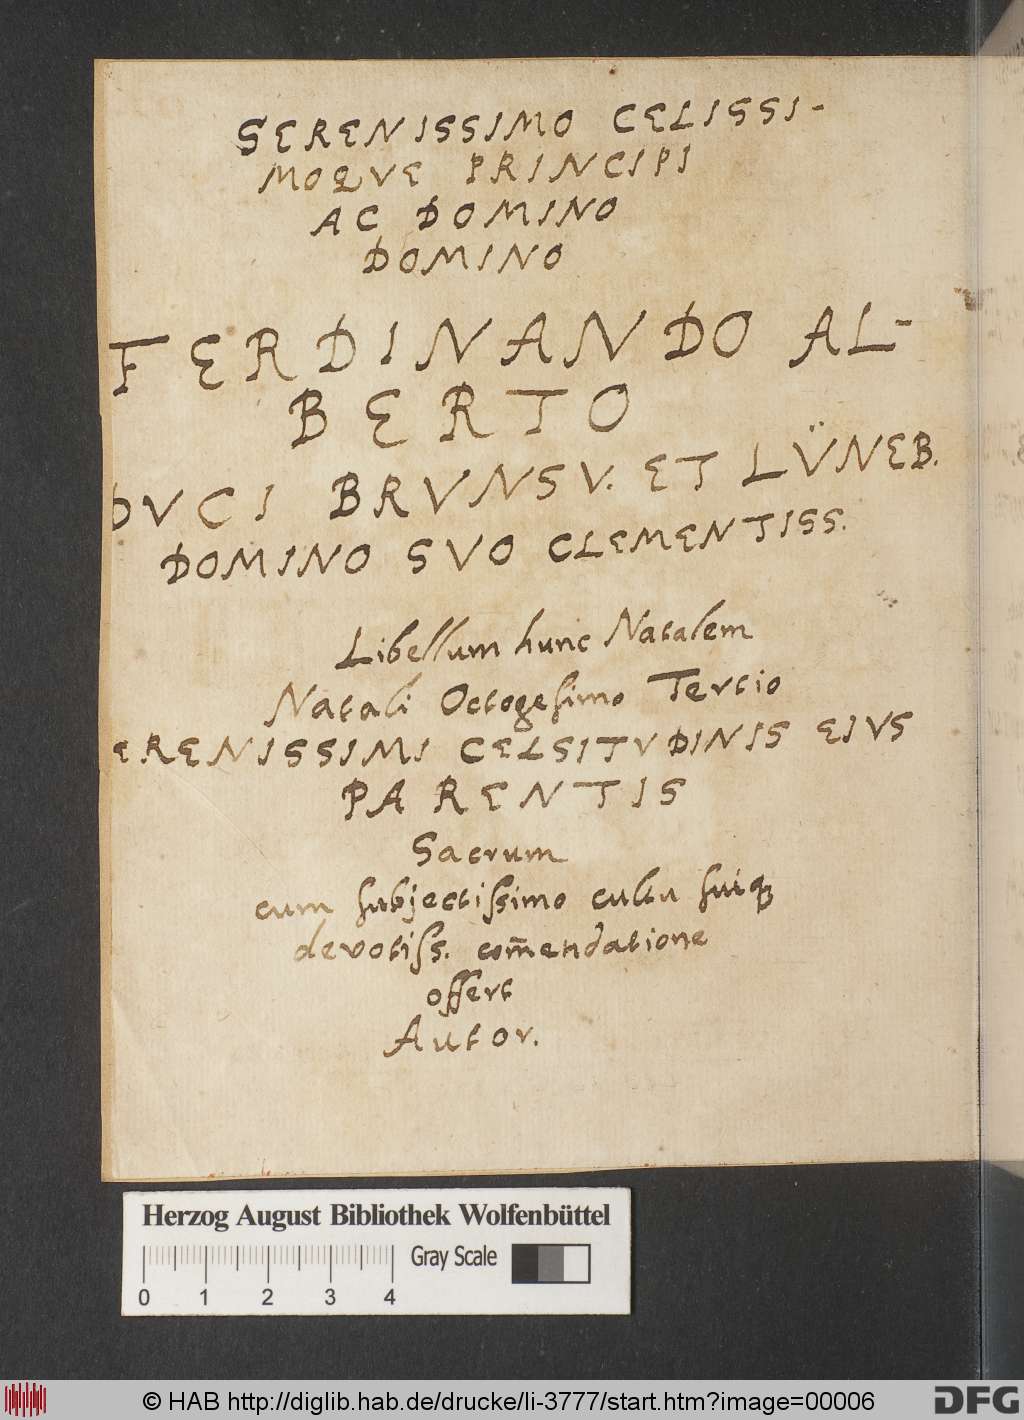 SERENISSIMO CELISSI-
MOQVE PRINCIPI
AC DOMINO
DOMINO
FERDINANDO AL-
BERTO
DVCI BRVNSV. ET LÜNEB.
DOMINO SVO CLEMENTISS.
Libellum hunc Natalem
Natali Octogesimo Tertio
ERENISSIMI CELSITVDINIS EIVS
PARENTIS
Sacrum
cum subjectissimo cultu suiq
devotiss. com̄endatione
offert
Autor.
Herzog August Bibliothek Wolfenbüttel
Gray Scale
0 1 2 3 4
© HAB http://diglib.hab.de/drucke/li-3777/start.htm?image=00006
DFG